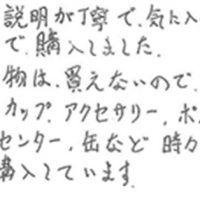 説明が丁寧で、気に入
で、購入しました。
物は、買えないので、
カップ、アクセサリー、ポ
センター、缶など 時
購入しています。